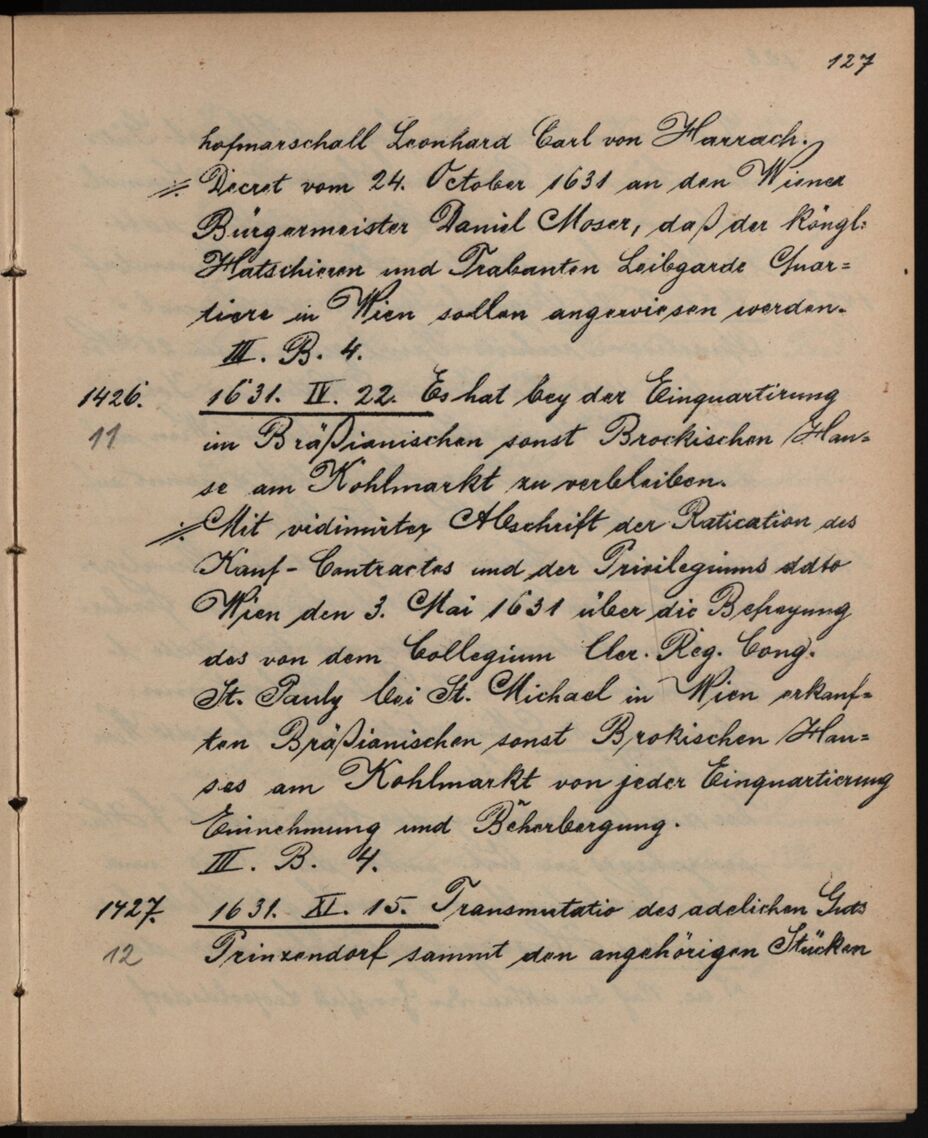 127
hofmarschall Leonhard Carl von Harrach.
Decret vom 24. October 1631 an den Wiener
Bürgermeister Daniel Moser, daß der Köngl:
Hatschieren und Trabanten Leibgarde Quar=
tiere in Wien sollen angewiesen werden.
III. B. 4.
1426. 1631. IV. 22. Es hat bey der Einquartirung
11 im Bräßianischen sonst Brockischen Hau=
se am Kohlmarkt zu verbleiben.
Mit vidimirter Abschrift der Ratication des
Kauf-Contractes und der Privilegiums ddto
Wien den 3. Mai 1631 über die Befreyung
des von dem Collegium Cler. Reg. Cong.
St. Pauly bei St. Michael in Wien erkauf=
ten Bräßianischen sonst Brokischen Hau=
ses am Kohlmarkt von jeder Einquartierung
Einnehmung und Beherbergung.
III. B. 4.
1427. 1631. XI. 15. Transmutatio des adelichen Guts
12 Prinzendorf sammt den angehörigen Stücken